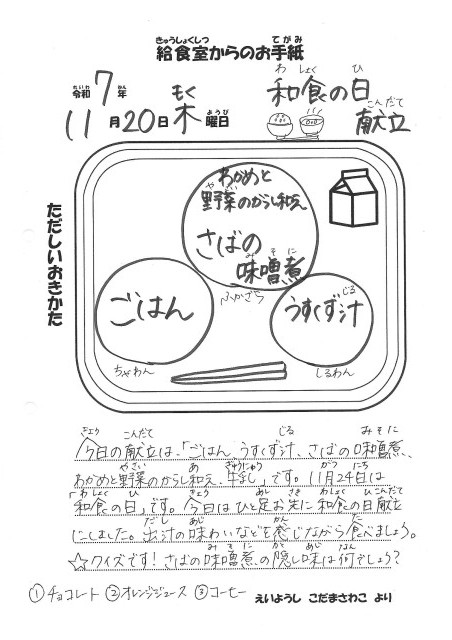 きゅうしょくしつ てがみ
給食室からのお手紙
れいわ ねん わしょく ひ
令和7年 和食の日
もく ようび こんだて
11月20日木曜日 献立
ただしいおきかた
わかめと
やさい
野菜のからし和え
さばの
みそに
味噌煮
ふかざら
ごはん
ちゃわん
じる
うすくず汁
しるわん
きょう こんだて じる みそに
今日の献立は、「ごはん、うすくず汁、さばの味噌煮、
やさい あ ぎゅうにゅう がつ にち
わかめと野菜のからし和え、牛乳」です。11月24日は
わしょく ひ きょう あし さき わしょく ひこんだて
「和食の日」です。今日はひと足お先に和食の日献立
だし あじ かん た
にしました。出汁の味わいなどを感じながら食べましょう。
みそに かく あじ なん
☆クイズです!さばの味噌煮の隠し味は何でしょう?
①チョコレート ②オレンジジュース ③コーヒー
えいようし こだまさわこ より